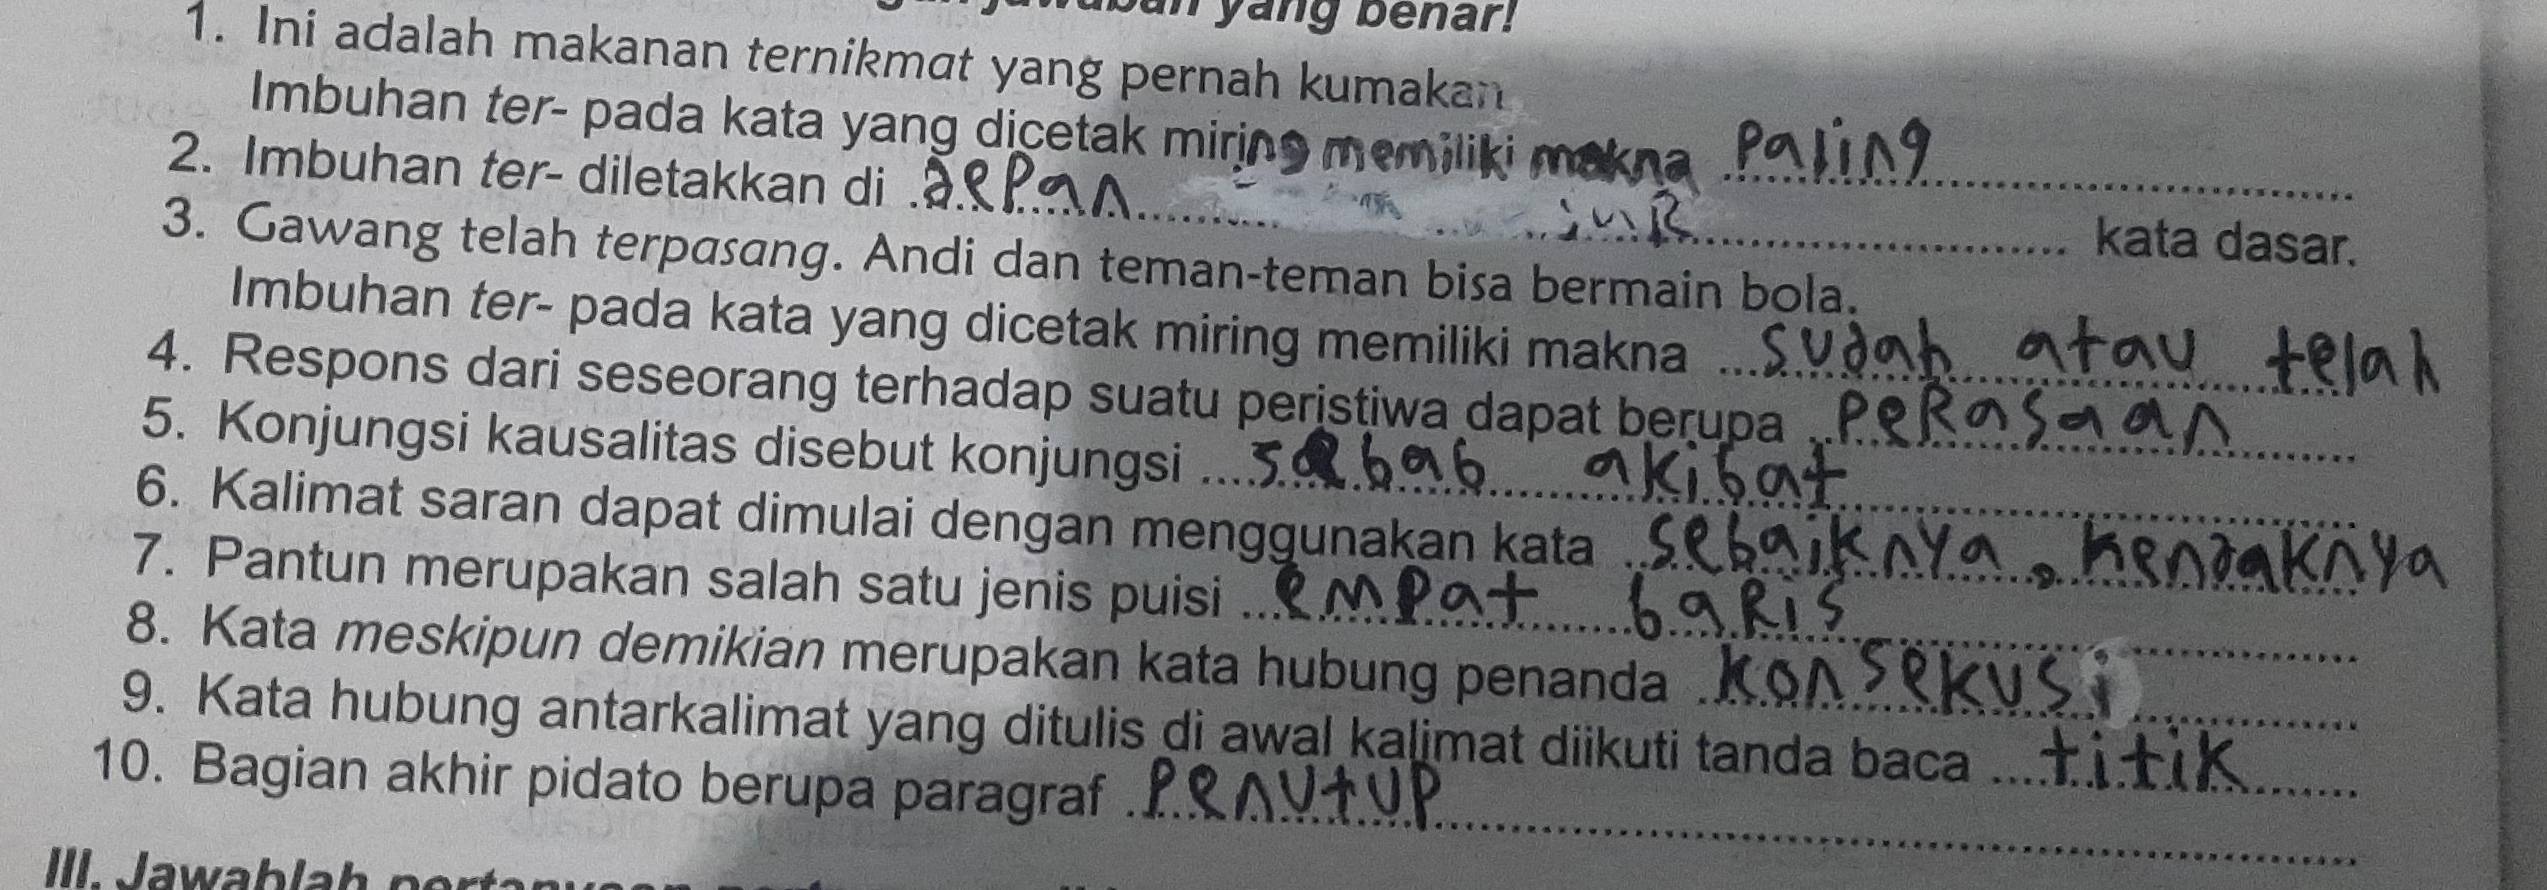 yang benar!
1. Ini adalah makanan ternikmat yang pernah kumakan
Imbuhan ter- pada kata yang dicetak miring memiliki makna paling
2. Imbuhan ter- diletakkan di depan kata dasar.
3. Gawang telah terpasang. Andi dan teman-teman bisa bermain bola.
Imbuhan ter- pada kata yang dicetak miring memiliki makna ... sudah atau telah
4. Respons dari seseorang terhadap suatu peristiwa dapat berupa perasaan
5. Konjungsi kausalitas disebut konjungsi ... sebab akibat
6. Kalimat saran dapat dimulai dengan menggunakan kata sebaiknya, hendaknya
7. Pantun merupakan salah satu jenis puisi ... empat baris
8. Kata meskipun demikian merupakan kata hubung penanda konsekusi
9. Kata hubung antarkalimat yang ditulis di awal kalimat diikuti tanda baca ... titik
10. Bagian akhir pidato berupa paragraf penutup
III. Jawablah